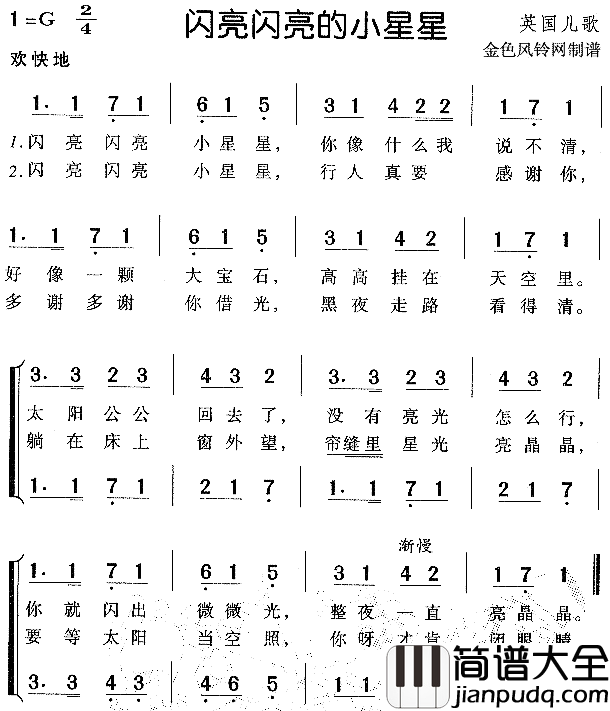 1=G 2/4
闪亮闪亮的小星星
英国儿歌
欢快地
金色风铃网制谱
1. 1 7 1 | 6 1 5 | 3 1 4 2 2 | 1 7 1 |
1.闪亮闪亮 小星星, 你像什么我 说不清,
2.闪亮闪亮 小星星, 行人真要 感谢你,
1. 1 7 1 | 6 1 5 | 3 1 4 2 | 1 7 1 |
好像一颗 大宝石, 高高挂在 天空里。
多谢多谢 你借光, 黑夜走路 看得清。
3. 3 2 3 | 4 3 2 | 3. 3 2 3 | 4 3 2 |
太阳公公 回去了, 没有亮光 怎么行,
躺在床上 窗外望, 帘缝里星光 亮晶晶,
1. 1 7 1 | 2 1 7 | 1. 1 7 1 | 2 1 7 |
渐慢
1. 1 7 1 | 6 1 5 | 3 1 4 2 | 1 7 1
你就闪出 微微光, 整夜一直 亮晶晶。
要等太阳 当空照, 你呀才肯 闭眼睛
3. 3 4 3 | 4 3 3 | 1 1
简谱大全
jianpudq.com